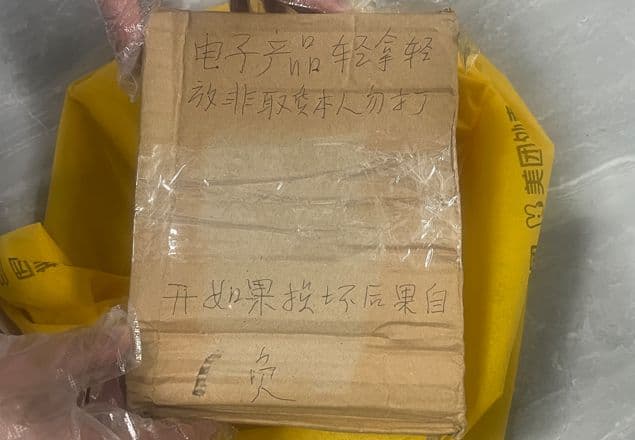 电子产品轻拿轻
放非取货本人勿打
开如果损坏后果自
负
美团外